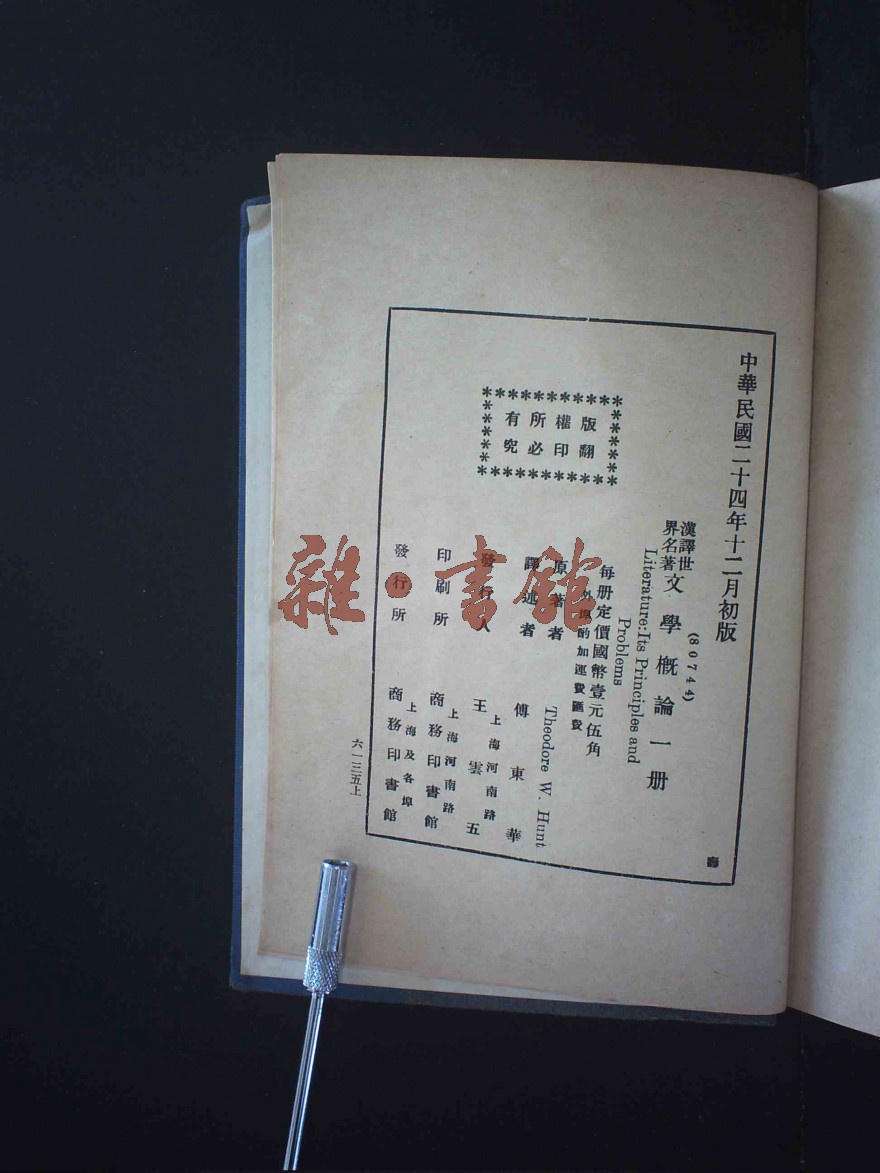 中華民國二十四年十二月初版
漢譯世
界名著
文學概論一册
(80744)
Literature: Its Principles and
Problems
每册定價國幣壹元伍角
外埠酌加運費匯費
原著者 Theodore W. Hunt
譯述者 傅東華
發行人 王雲五
上海河南路
印刷所 商務印書館
上海河南路
發行所 商務印書館
上海及各埠
版權所有
翻印必究
六一三五上
壽
雜·書館